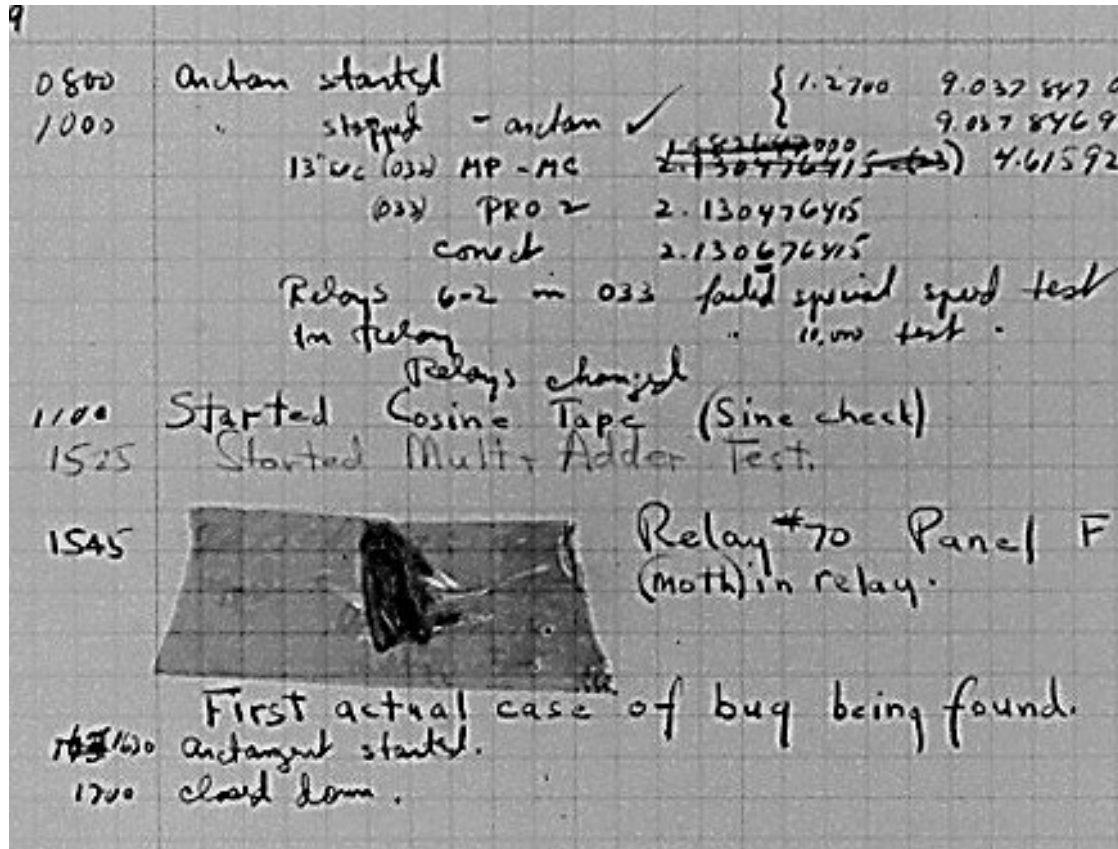 9
0800 arctan started { 1.2700 9.037 847 0
1000 " stopped - arctan ✓ 9.037 846 9
13" uc (032) MP - MC 2.130476415 (-3) 4.61592
(033) PRO 2 2.130476415
conect 2.130676415
Relays 6-2 in 033 failed special speed test
In relay " 10,000 test .
Relays changed
1100 Started Cosine Tape (Sine check)
1525 Started Mult + Adder Test.
1545 Relay #70 Panel F
(Moth) in relay.
First actual case of bug being found.
1630 arctangent started.
1700 closed down.